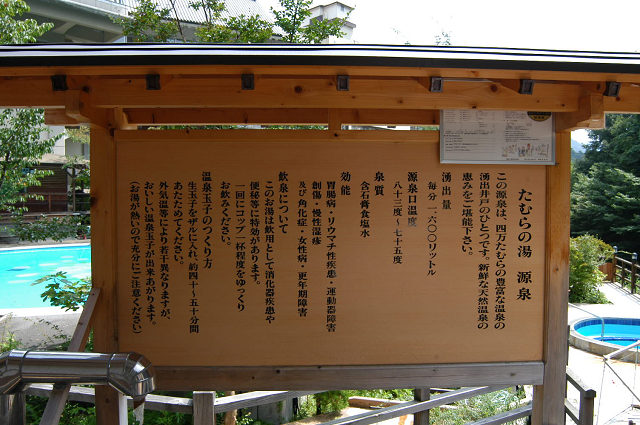 たむらの湯　源泉
この源泉は、四万たむらの豊富な温泉の
湧出井戸のひとつです。新鮮な天然温泉の
恵みをご堪能下さい。
湧出量
毎分一、六〇〇リットル
源泉口温度
八十三度〜七十五度
泉質
含石膏食塩水
効能
胃腸病・リウマチ性疾患・運動器障害
創傷・慢性湿疹
及び角化症・女性病・更年期障害
飲泉について
このお湯は飲用として消化器疾患や
便秘等に特効があります。
一回にコップ一杯程度をゆっくり
お飲みください。
温泉玉子のつくり方
生玉子をザルに入れ、約四十〜五十分間
あたためてください。
外気温等により若干異なりますが、
おいしい温泉玉子が出来あがります。
（お湯が熱いので充分にご注意ください）